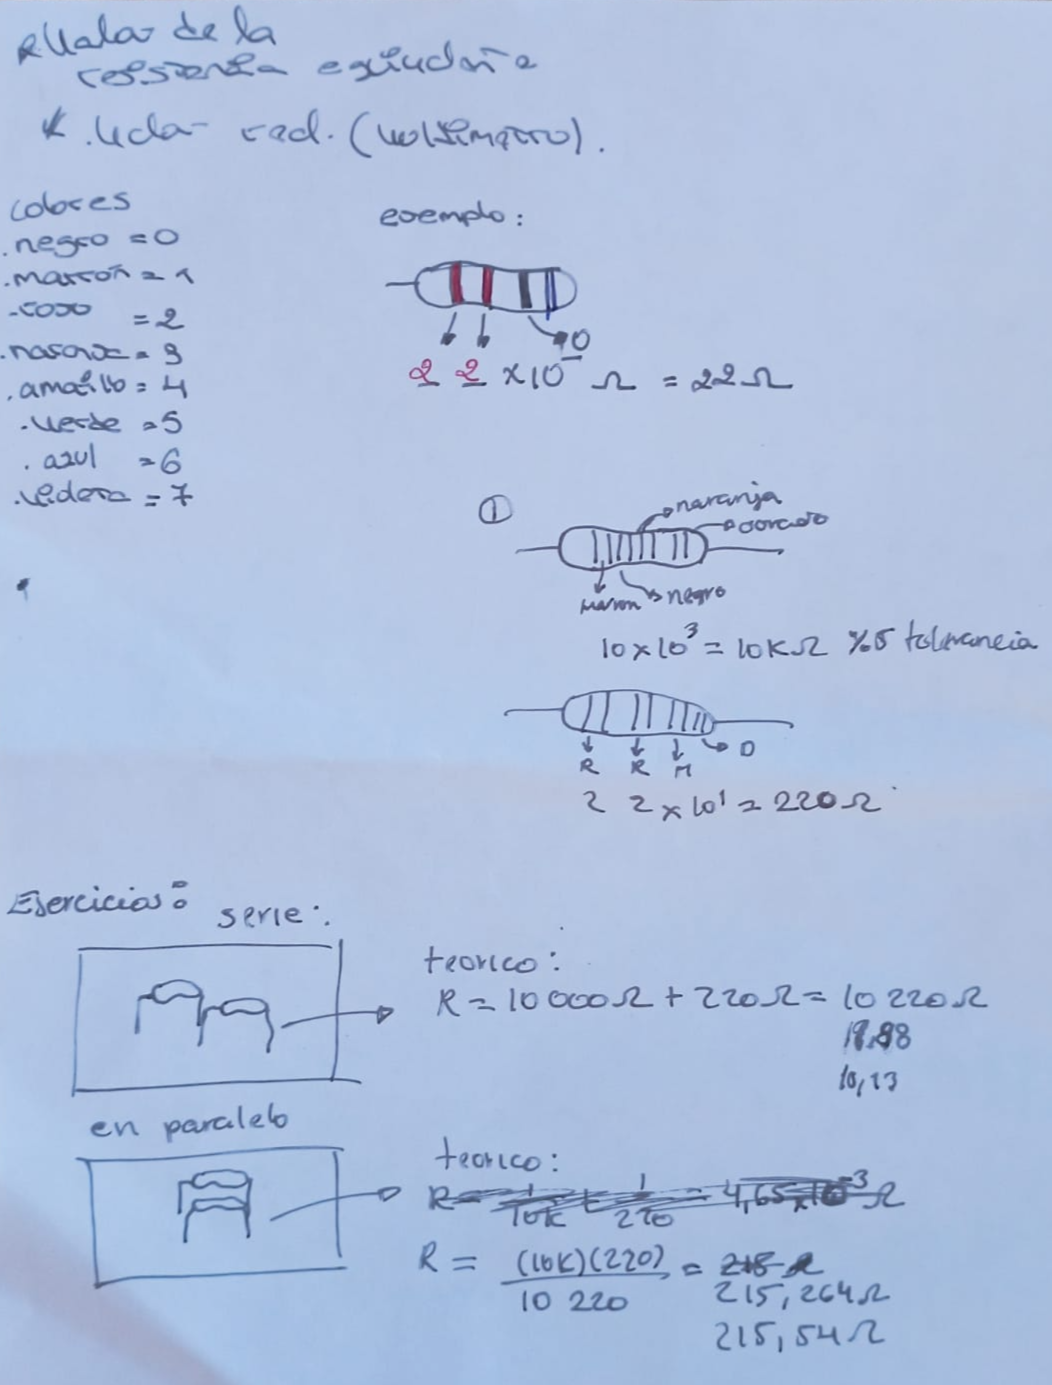 Valor de la
resistencia equivalente
real. (voltímetro).
colores
.negro = 0
.marrón = 1
.rojo = 2
.naranja = 3
.amarillo = 4
.verde = 5
.azul = 6
.violeta = 7
ejemplo:
0
2 2 x10 Ω = 22Ω
① naranja
dorado
marron negro
10 x 10³ = 10KΩ %5 tolerancia
D
R R M
2 2 x 10¹ = 220Ω
Ejercicios: serie:
teorico:
R = 10 000Ω + 220Ω = 10 220Ω
10,13
en paralelo
teorico:
R = 1/10K + 1/220 = 4,65x10⁻³Ω
R = (10K)(220) / 10 220 = 215 Ω
215,264Ω
215,54Ω